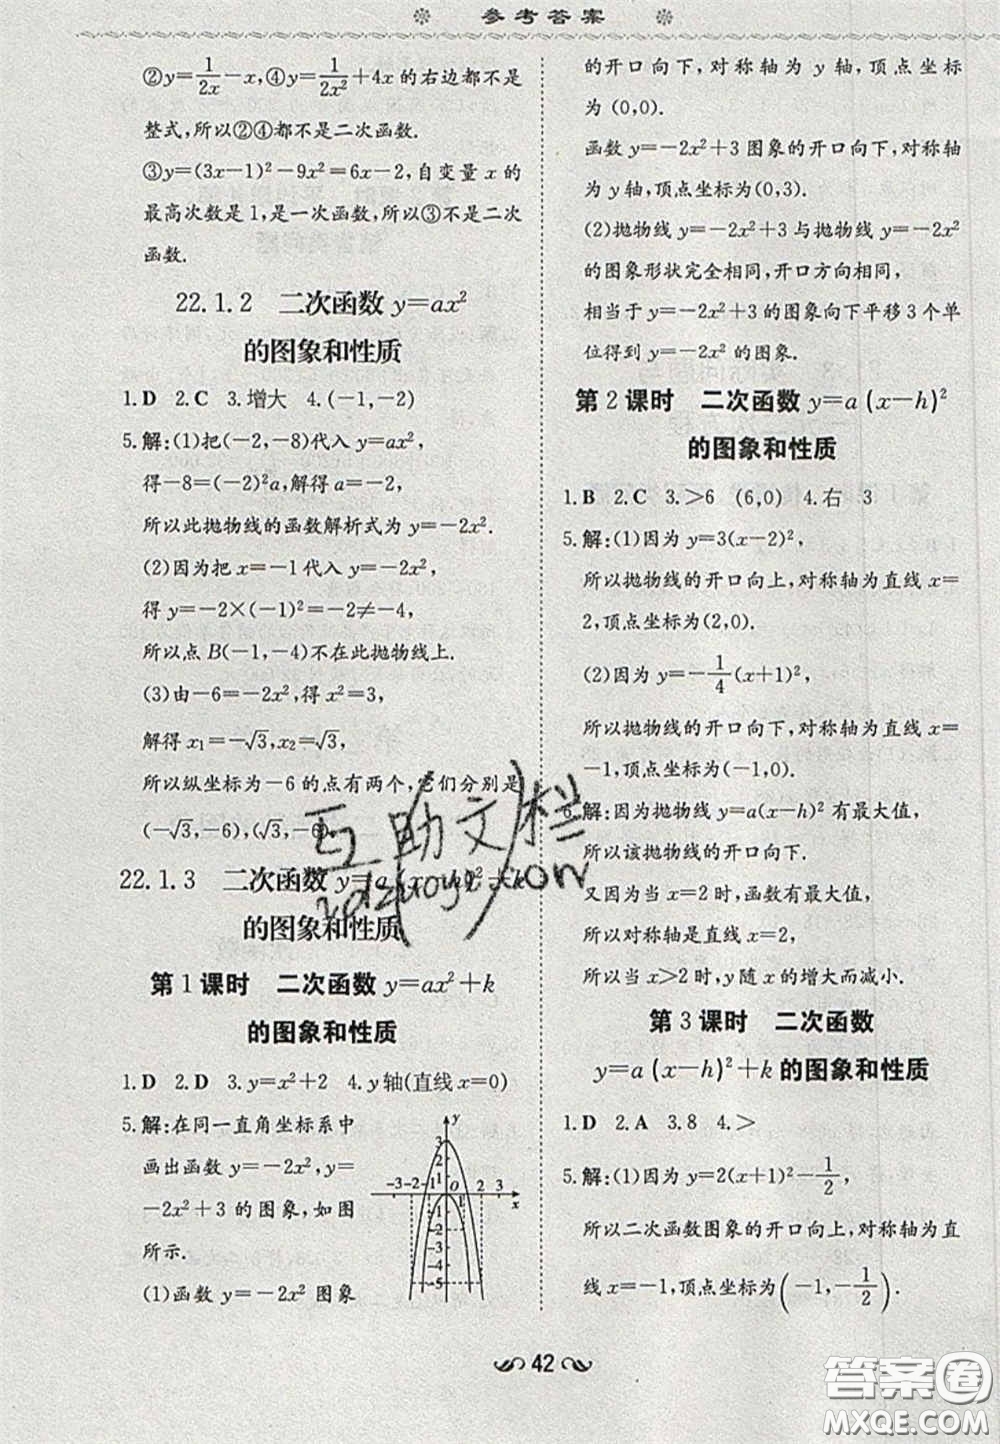 参考答案
②y=1/2x-x,④y=1/2x²+4x的右边都不是
整式,所以②④都不是二次函数.
③y=(3x-1)²-9x²=6x-1,自变量 x 的
最高次数是1,是一次函数,所以③不是二次
函数.
22.1.2 二次函数 y=ax²
的图象和性质
1.D 2.C 3.增大 4.(-1,-2)
5.解:(1)把(-2,-8)代入 y=ax²,
得-8=(-2)²a,解得a=-2,
所以此抛物线的函数解析式为 y=-2x².
(2)因为把 x=-1代入 y=-2x²,
得 y=-2×(-1)²=-2≠-4,
所以点 B(-1,-4)不在此抛物线上.
(3)由-6=-2x²,得 x²=3,
解得 x₁=-√3,x₂=√3,
所以纵坐标为-6的点有两个,它们分别是
(-√3,-6),(√3,-6).
22.1.3 二次函数 y=a(x-h)²+k
的图象和性质
第1课时 二次函数 y=ax²+k
的图象和性质
1.D 2.D 3.y=x²+2 4.y轴(直线x=0)
5.解:在同一直角坐标系中
画出函数 y=-2x²,y=
-2x²+3的图象,如图
所示.
(1)函数 y=-2x² 图象
y
3
2
1
-3 -2 -1 O 1 2 3
x
-1
-2
-3
-4
-5
的开口向下,对称轴为 y 轴,顶点坐标
为(0,0).
函数 y=-2x²+3图象的开口向下,对称轴
为 y 轴,顶点坐标为(0,3).
(2)抛物线 y=-2x²+3与抛物线 y=-2x²
的图象形状完全相同,开口方向相同,
相当于 y=-2x²+3的图象向下平移3个单
位得到 y=-2x² 的图象.
第2课时 二次函数 y=a(x-h)²
的图象和性质
1.B 2.C 3.>6 (6,0) 4.右 3
5.解:(1)因为 y=3(x-2)²,
所以抛物线的开口向上,对称轴为直线 x=
2,顶点坐标为(2,0).
(2)因为 y=-1/4(x+1)²,
所以抛物线的开口向下,对称轴为直线 x=
-1,顶点坐标为(-1,0).
6.解:因为抛物线 y=a(x-h)² 有最大值,
所以该抛物线的开口向下.
又因为当 x=2时,函数有最大值,
所以对称轴是直线 x=2,
所以当 x>2时,y随x的增大而减小.
第3课时 二次函数
y=a(x-h)²+k的图象和性质
1.D 2.A 3.8 4.>
5.解:(1)因为 y=2(x+1)²-1/2,
所以二次函数图象的开口向上,对称轴为直
线 x=-1,顶点坐标为(-1,-1/2).
42
互助文栏
答案圈
MXQE.COM